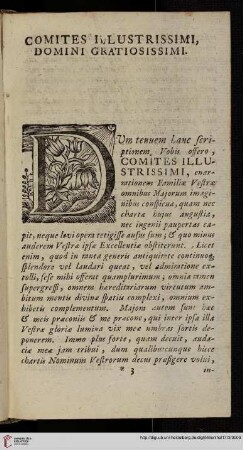 COMITES ILLUSTRISSIMI,
DOMINI GRATIOSISSIMI.
DUm tenuem hanc scri-
ptionem Vobis offero,
COMITES ILLU-
STRISSIMI, enar-
rationem Familiæ Vestræ
omnibus Majorum imagi-
nibus conspicuæ, quam nec
chartæ hujus angustia,
nec ingenii paupertas ca-
pit, neque levi opera tetigisse ausus sum; & quo minus
auderem Vestræ ipsæ Excellentiæ obstiterunt. Licet
enim, quod in tanta generis antiquitate continuoq;
splendore vel laudari queat, vel admiratione ex-
tolli, sese mihi offerat quamplurimum; omnia tamen
supergressi, omnem hæreditariarum virtutum am-
bitum mentis divinæ spatiis complexi, omnium exhi-
betis complementum. Majora autem sunt hæc
& meis præconiis & me præcone, qui inter ipsa illa
Vestræ gloriæ lumina vix meæ umbras sortis de-
ponerem. Immo plus forte, quam decuit, auda-
ciæ meæ jam tribui, dum qualibuscunque hisce
chartis Nominum Vestrorum decus præfigere volui,
* 3 in-